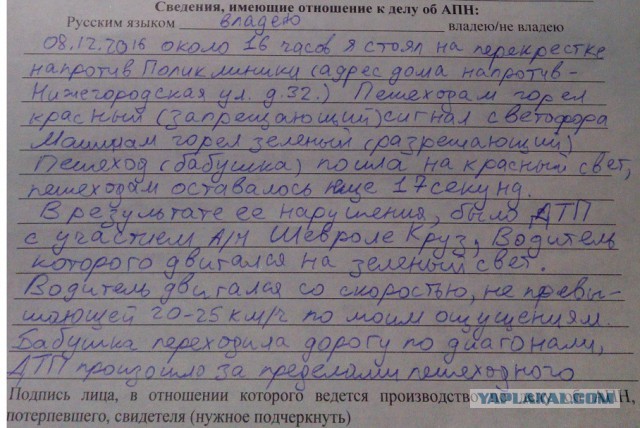 Сведения, имеющие отношение к делу об АПН:
Русским языком владею владею/не владею
08.12.2016 около 16 часов я стоял на перекрестке
напротив Поликлиники (адрес дома напротив -
Нижегородская ул. д.32.) Пешеходам горел
красный (запрещающий) сигнал светофора
Машинам горел зеленый (разрещающий)
Пешеход (бабушка) пошла на красный свет,
пешеходам оставалось еще 17 секунд.
В результате ее нарушения, было ДТП
с участием А/М Шевроле Круз, Водитель
которого двигался на зеленый свет.
Водитель двигался со скоростью, не превы-
шающей 20-25 км/ч по моим ощущениям.
Бабушка переходила дорогу по диагонали,
ДТП произошло за пределами пешеходного
Подпись лица, в отношении которого ведется производство по делу об АПН,
потерпевшего, свидетеля (нужное подчеркнуть)
YAPLAKAL.COM